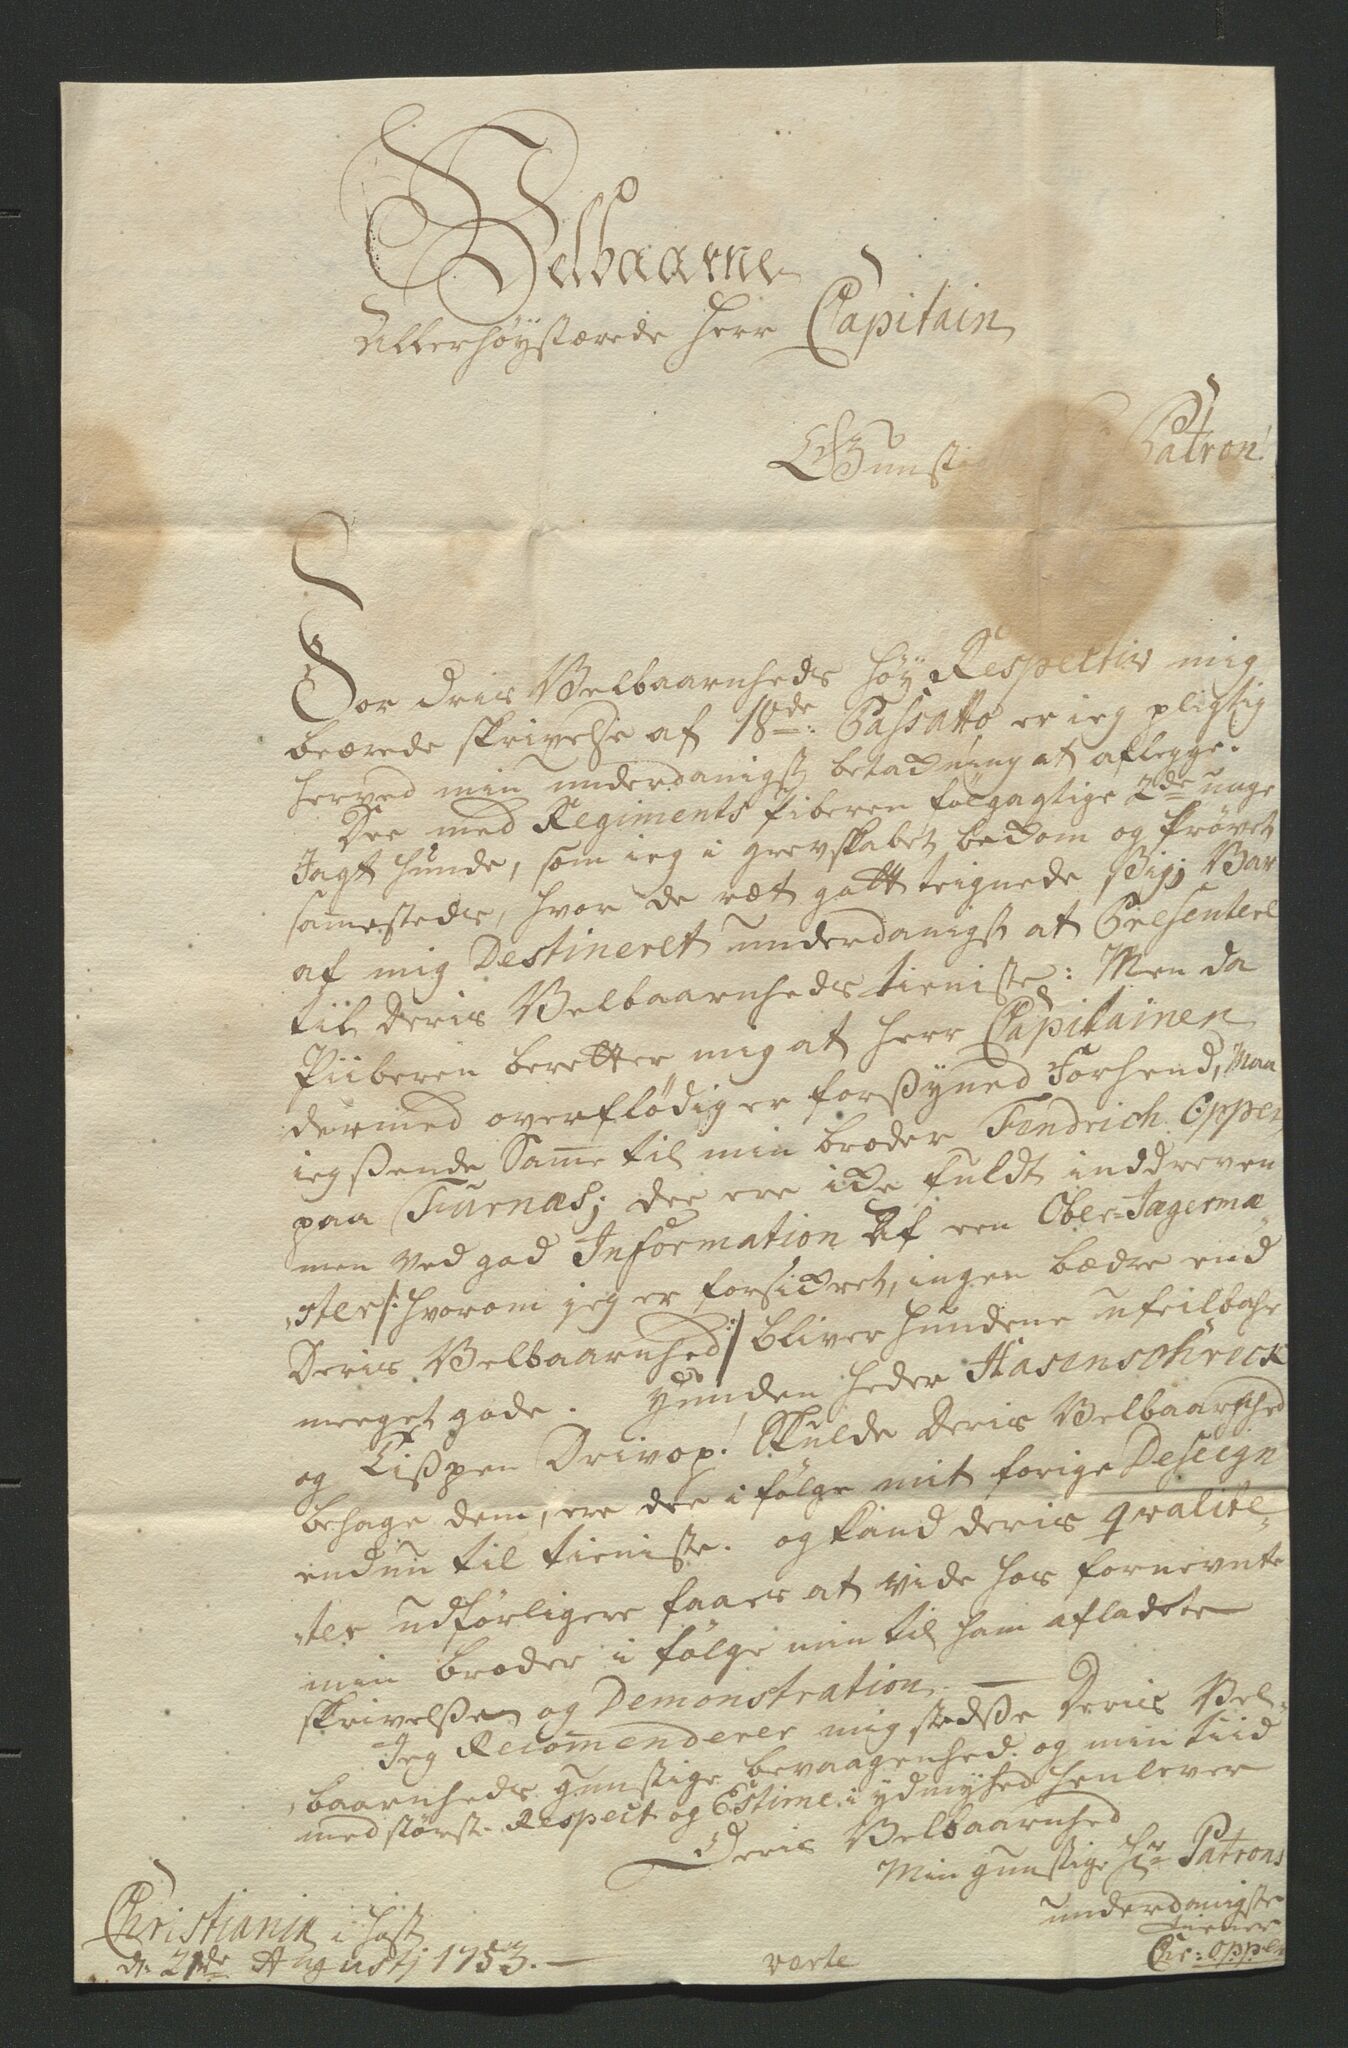 Velbaarne
Allerhøystærede Herr Capitain
Gunstig Patron!
For Deris Velbaarnheds høy Respective mig
beærede skrivelse af 18de: Passatto er ieg pligtig
herved min underdanigst betackning at aflegge.
Dee med Regiments Piberen følgagtige 2de unge
Jagt hunde, som ieg i grevskabet bekom og prøvet
sammesteds, hvor de ræt gott teignede Sig; Var
af mig Destineret underdanigst at Presentere
til Deris Velbaarnheds tieniste: Men da
Piiberen beretter mig at Herr Capitainen
dermed overflødig er forsyned Forhend, maa
ieg sende Samme til min broder Fendrich Oppen
paa Furnæs; dee ere icke fuldt inddreven
men ved god Information af een Ober-Jagermæ-
ster /: hvorom jeg er forsickret, ingen bædre end
Deris Velbaarnhed :/ bliver hundene ufeilbahr
meeget gode. Hunden heder Hasenschreck
og Tispen Drivop! Skulde Deris Velbaarnhed
behage dem, ere dee i følge mit forige Deseign
endnu til tieniste. og kand deris qvalite-
ter udførligere faaes at vide hos fornevnte
min broder i følge min til ham afladete
skrivelse og Demonstration. —
Jeg Recommenderer mig stedse Deris Vel-
baarnheds gunstige bevaagenhed. og min tiid
med størst Respect og Estime i ydmyghed henlever
Deris Velbaarnhed
Min gunstige Hr Patrons
underdanigste
tiener
Chr: Oppen
Christiania i hast
d: 21de Augustj 1753. —
verte